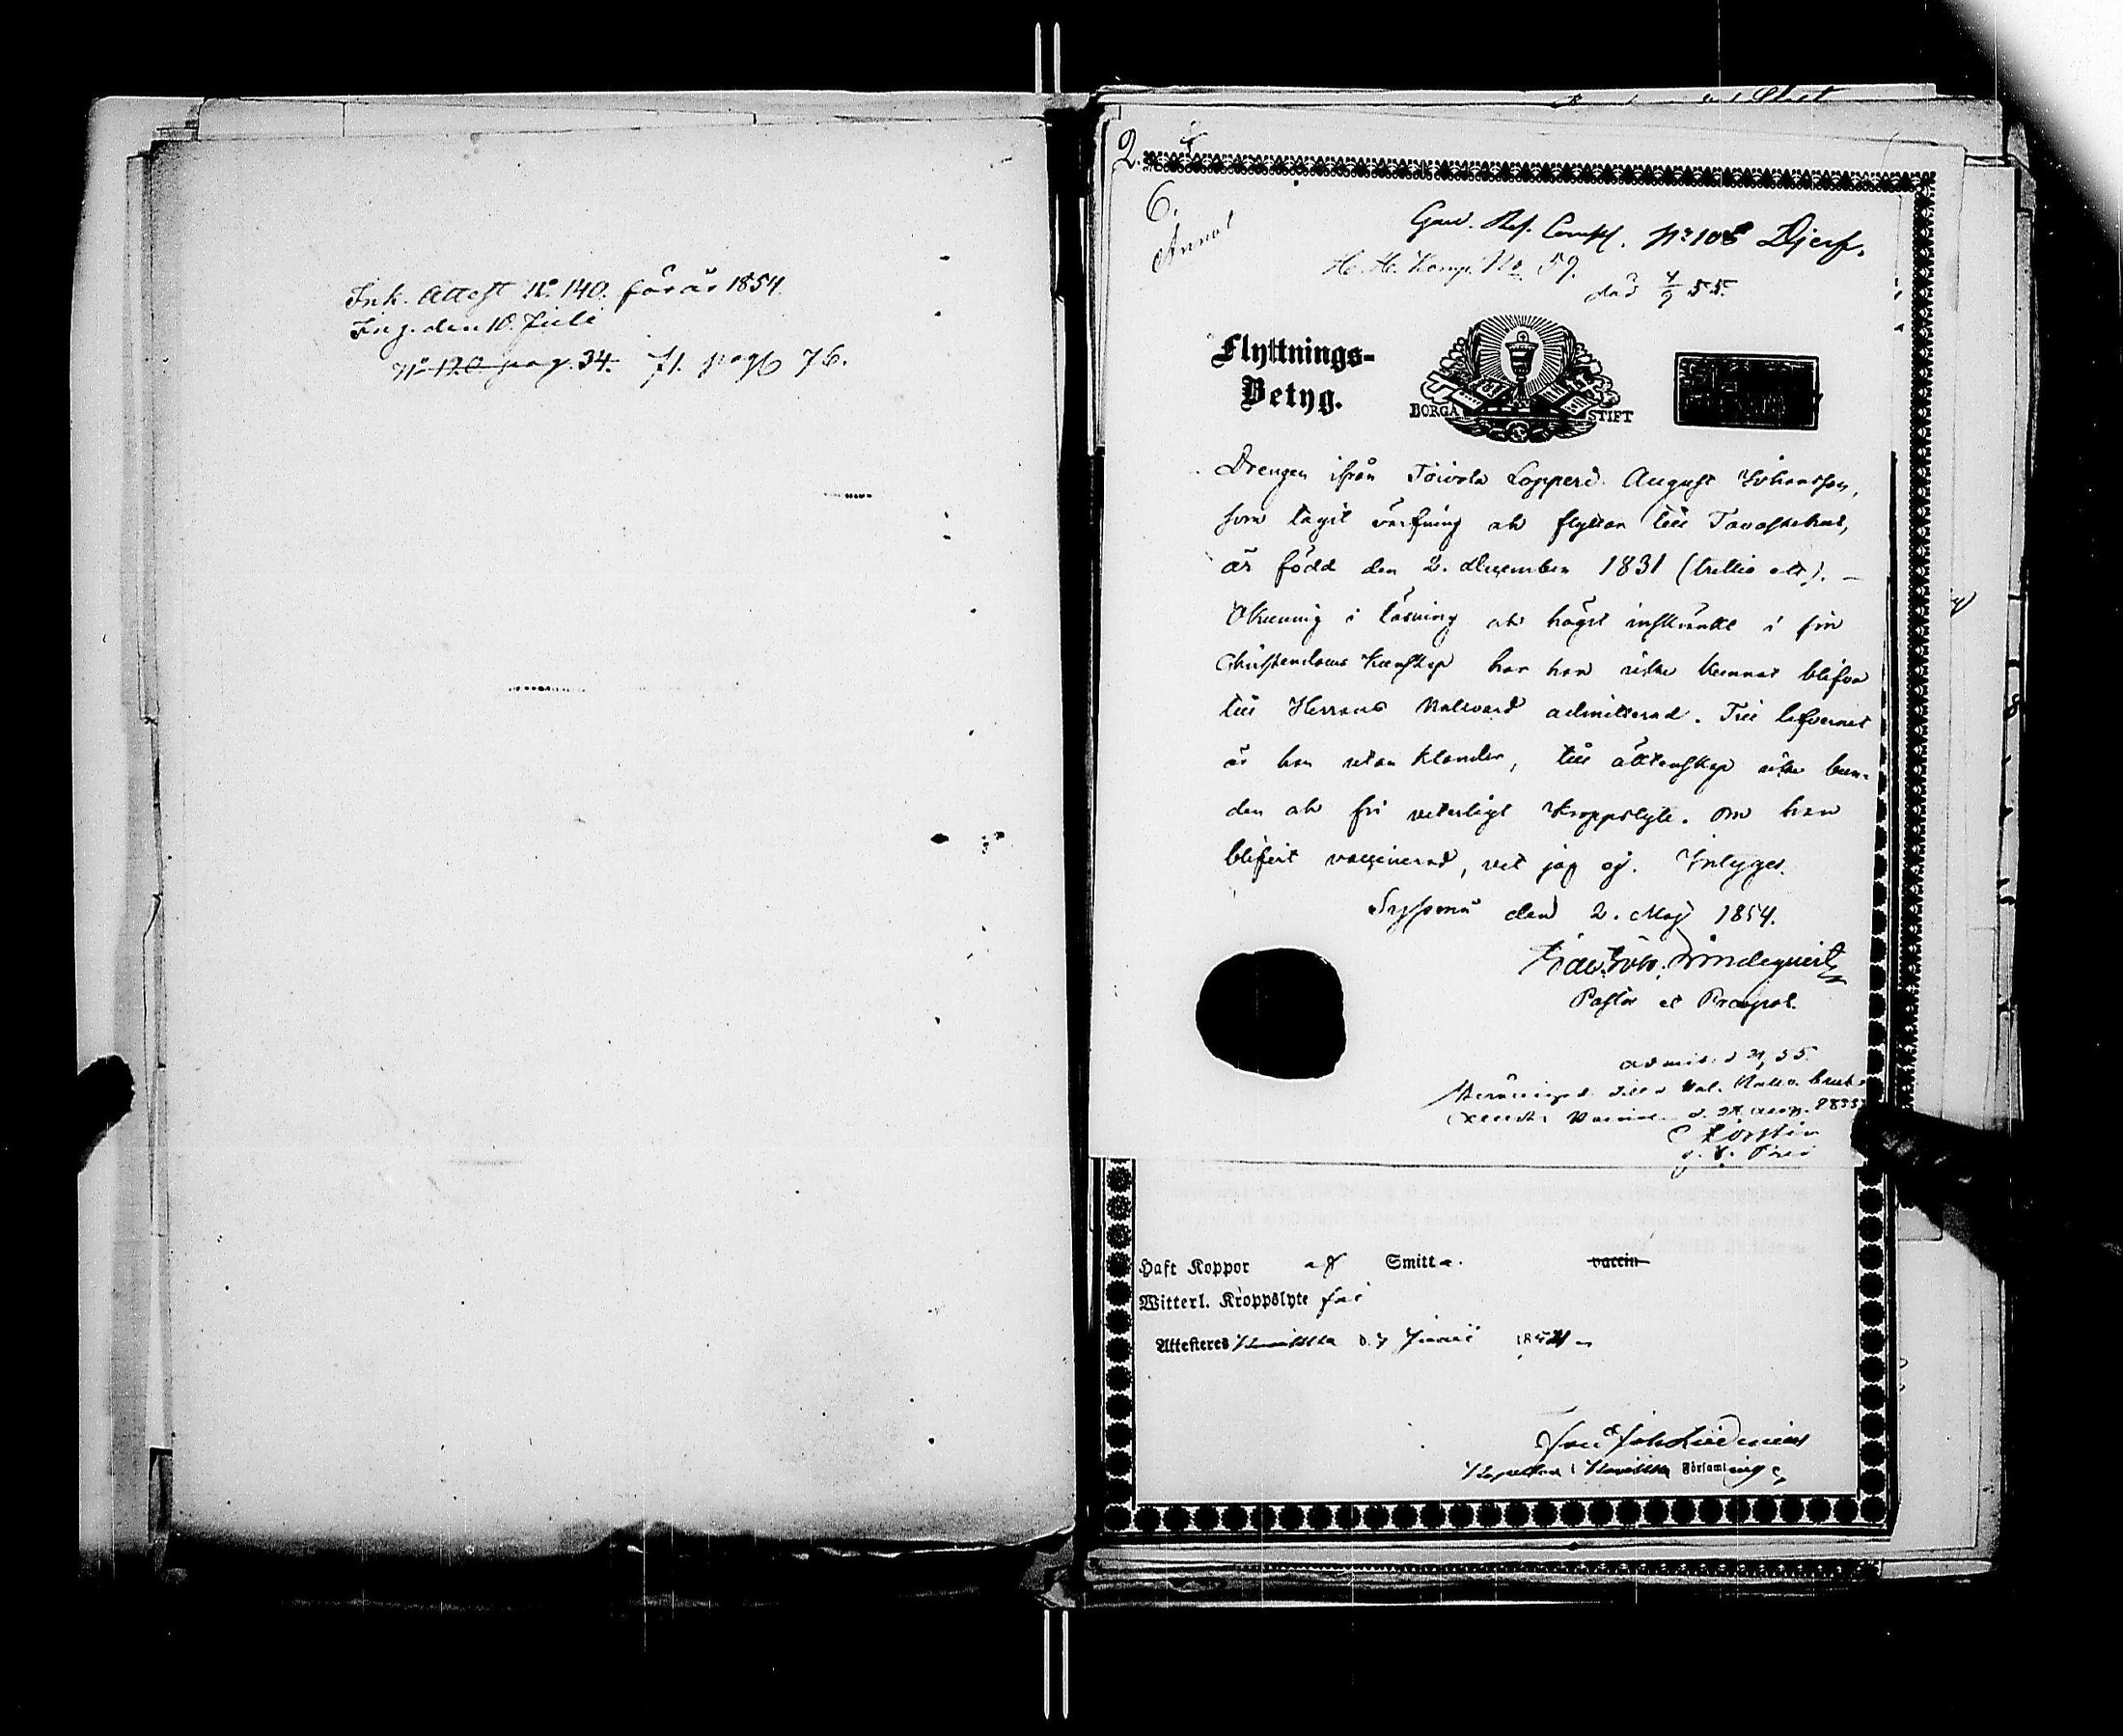 Ink. Attest No. 140. för år 1854.
Ing. den 10. Juli
No 120. pag. 34. fl. pag 76.
2.
6.
Annot
Gard. Res. Comp. No 108 Djerf.
No 59.
död 4/9 55.
Flyttnings-
Betyg.
BORGÅ STIFT
Drengen ifrån Toivola Lopperi August Johansson,
som tagit värfning och flyttar till Tavastehus,
är född den 2. december 1831 (trettio ett). —
Okunnig i läsning och högst inskränkt i sin
Christendoms kunskap har han icke kunnat blifva
till Herrans Nattvard admitterad. Till lefvernet
är han utan klander, till äktenskap icke bun-
den och fri veterligt kroppslyte. Om han
blifvit vaccinerad, vet jag ej. Intygar.
Sysmä den 2. Maj 1854.
Lindequist
Pastor et Præpos.
admit. d 55
C Forstén
Haft Koppor af Smitta. vaccin
Witterl. Kroppslyte fri
Attesteres d. 7 Junii 1854
Joh
i Församling